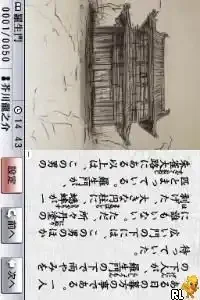 羅生門
0001/0050
芥川龍之介
14 43
設定
前へ
次へ
ある日の暮方の事である。一人
の下人が、羅生門の下で雨やみを
待っていた。
広い門の下には、この男のほか
に誰もいない。ただ、所々丹塗の
剥げた、大きな円柱に、蟋蟀が一
匹とまっている。羅生門が、
朱雀大路にある以上は、この男の